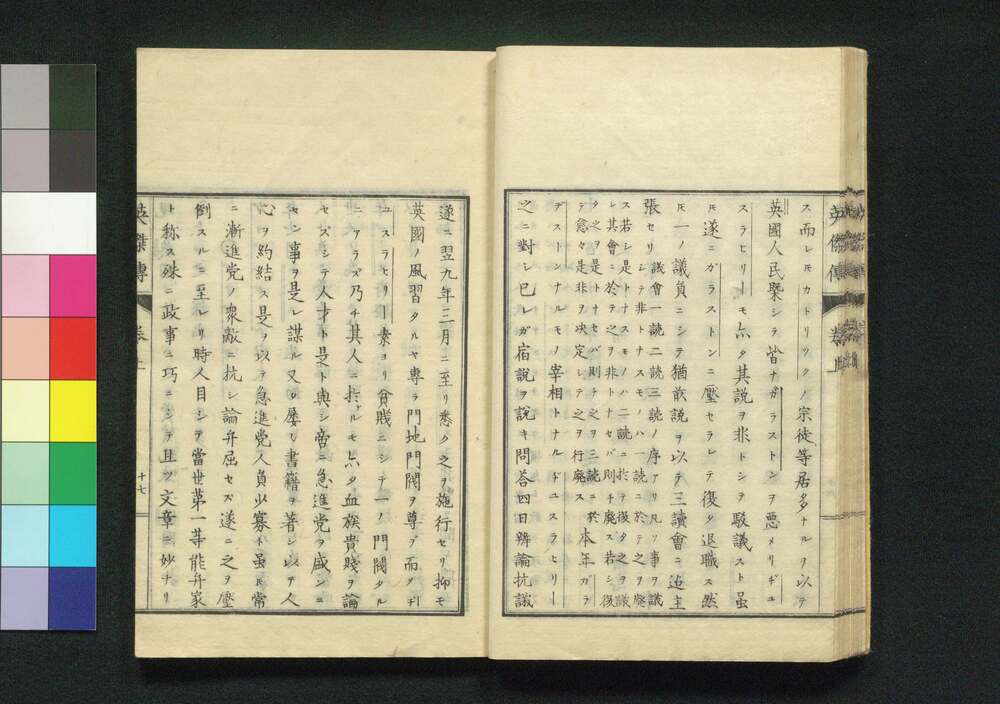 ス而レ𪜈カトリツクノ宗徒等居多ナルヲ以テ
英國人民槩シテ皆ナガラストンヲ悪メリヂユ
スラヒリーモ亦タ其説ヲ非トシテ駁議スト雖
𪜈遂ニガラストンニ壓セラレテ復タ退職ス然
𪜈一ノ議員ニシテ猶前説ヲ以テ三讀會ニ迨主
張セリ
議會一読二読三読ノ序アリ凡ソ事ヲ議
シテ非トナスモノハ一読ニ於テ之ヲ廢
ス若シ是トナスモノハ二読ニ於テ復タ之ヲ議
レ其會ニ於テ之ヲ非トナセバ則チ廃ス若シ復
タ之ヲ是トナセバ則チ之ヲ三読ニ於
テ愈々是非ヲ决定シテ之ヲ行廃ス
本年ガラ
デストンナルモノ宰相トナルヂユスラヒリー
之ニ對シ已レガ宿説ヲ說キ問荅四日辨論抗議
遂ニ翌九年三月ニ至リ悉ク之ヲ施行セリ抑モ
英國ノ風習タルヤ専ラ門地門閥ヲ尊ブ而〆ヂ
ユスラヒリー素ヨリ貧賤ニシテ一ノ門閥タル
ニアラズ乃チ其人ニ於ケルモ亦タ血族貴賤ヲ論
セズシテ人才ト是ト與シ帝ニ急進党ヲ盛ンニ
セン事ヲ是レ謀ル又タ屡〻書籍ヲ著シ以テ人
心ヲ約結ス是ヲ以テ急進党人員少寡ト虽𪜈常
ニ漸進党ノ衆敵ニ抗シ論弁屈セズ遂ニ之ヲ壓
倒スルニ至レリ時人目シテ當世第一等能弁家
ト称ス殊ニ政事ニ巧ニシテ且ツ文章ニ妙ナリ
英傑傳
十七